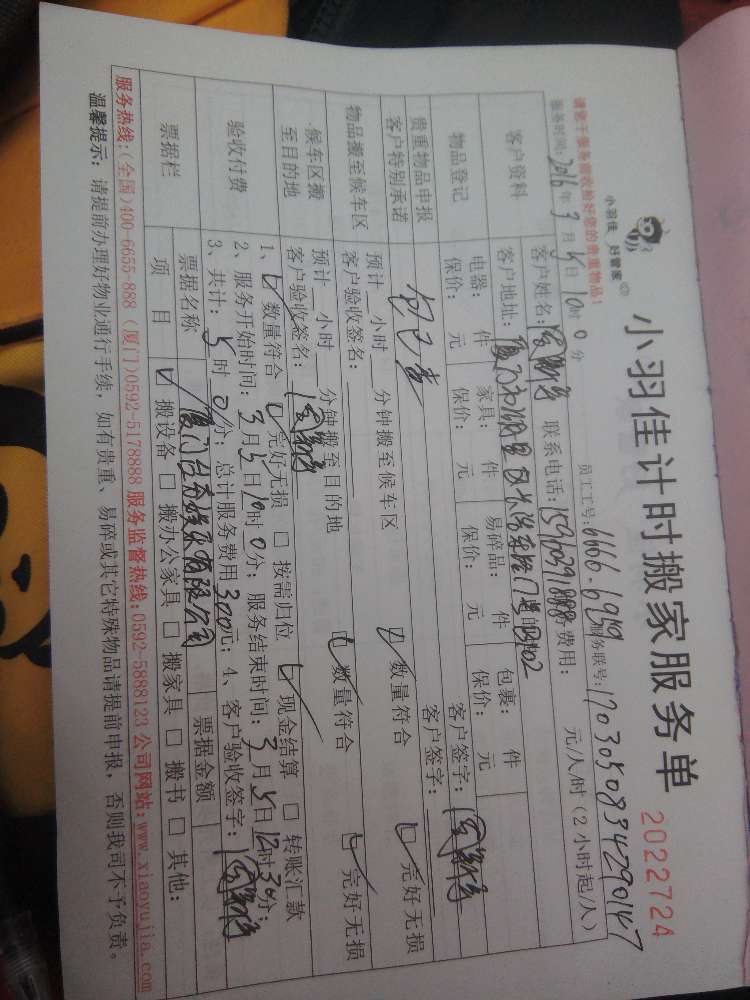 小羽佳 好管家
小羽佳计时搬家服务单 2022724
请您于服务前收拾好您的贵重物品！ 员工工号：6166-6959 服务联号：1703050834290147
服务时间：2016年3月5日10时0分
客户资料 客户姓名： 联系电话： 费用： 元/人/时（2小时起/人）
客户地址：
物品登记 电器： 件 家具： 件 易碎品： 件 包裹： 件
保价： 元 保价： 元 保价： 元 保价： 元
贵重物品申报 客户签字：
客户特别承诺 包已查 客户签字：
物品搬至候车区 预计 小时 分钟搬至候车区 数量符合 完好无损
客户验收签名：
候车区搬至目的地 预计 小时 分钟搬至目的地 数量符合 完好无损
客户验收签名：
验收付费 1、数量符合 完好无损 □ 按需归位 现金结算 □ 转账汇款
2、服务开始时间：3月5日10时0分；服务结束时间：3月5日12时30分；
3、共计：5时0分；总计服务费用300元；4、客户验收签字：
票据栏 票据名称 票据金额
项目 搬设备 □ 搬办公家具 □ 搬家具 □ 搬书 □ 其他：
服务热线：(全国)400-6655-888 (厦门)0592-5178888 服务监督热线：0592-5888123 公司网站：www.xiaoyujia.com
温馨提示：请提前办理好物业通行手续，如有贵重、易碎或其它特殊物品请提前申报，否则我司不予负责。